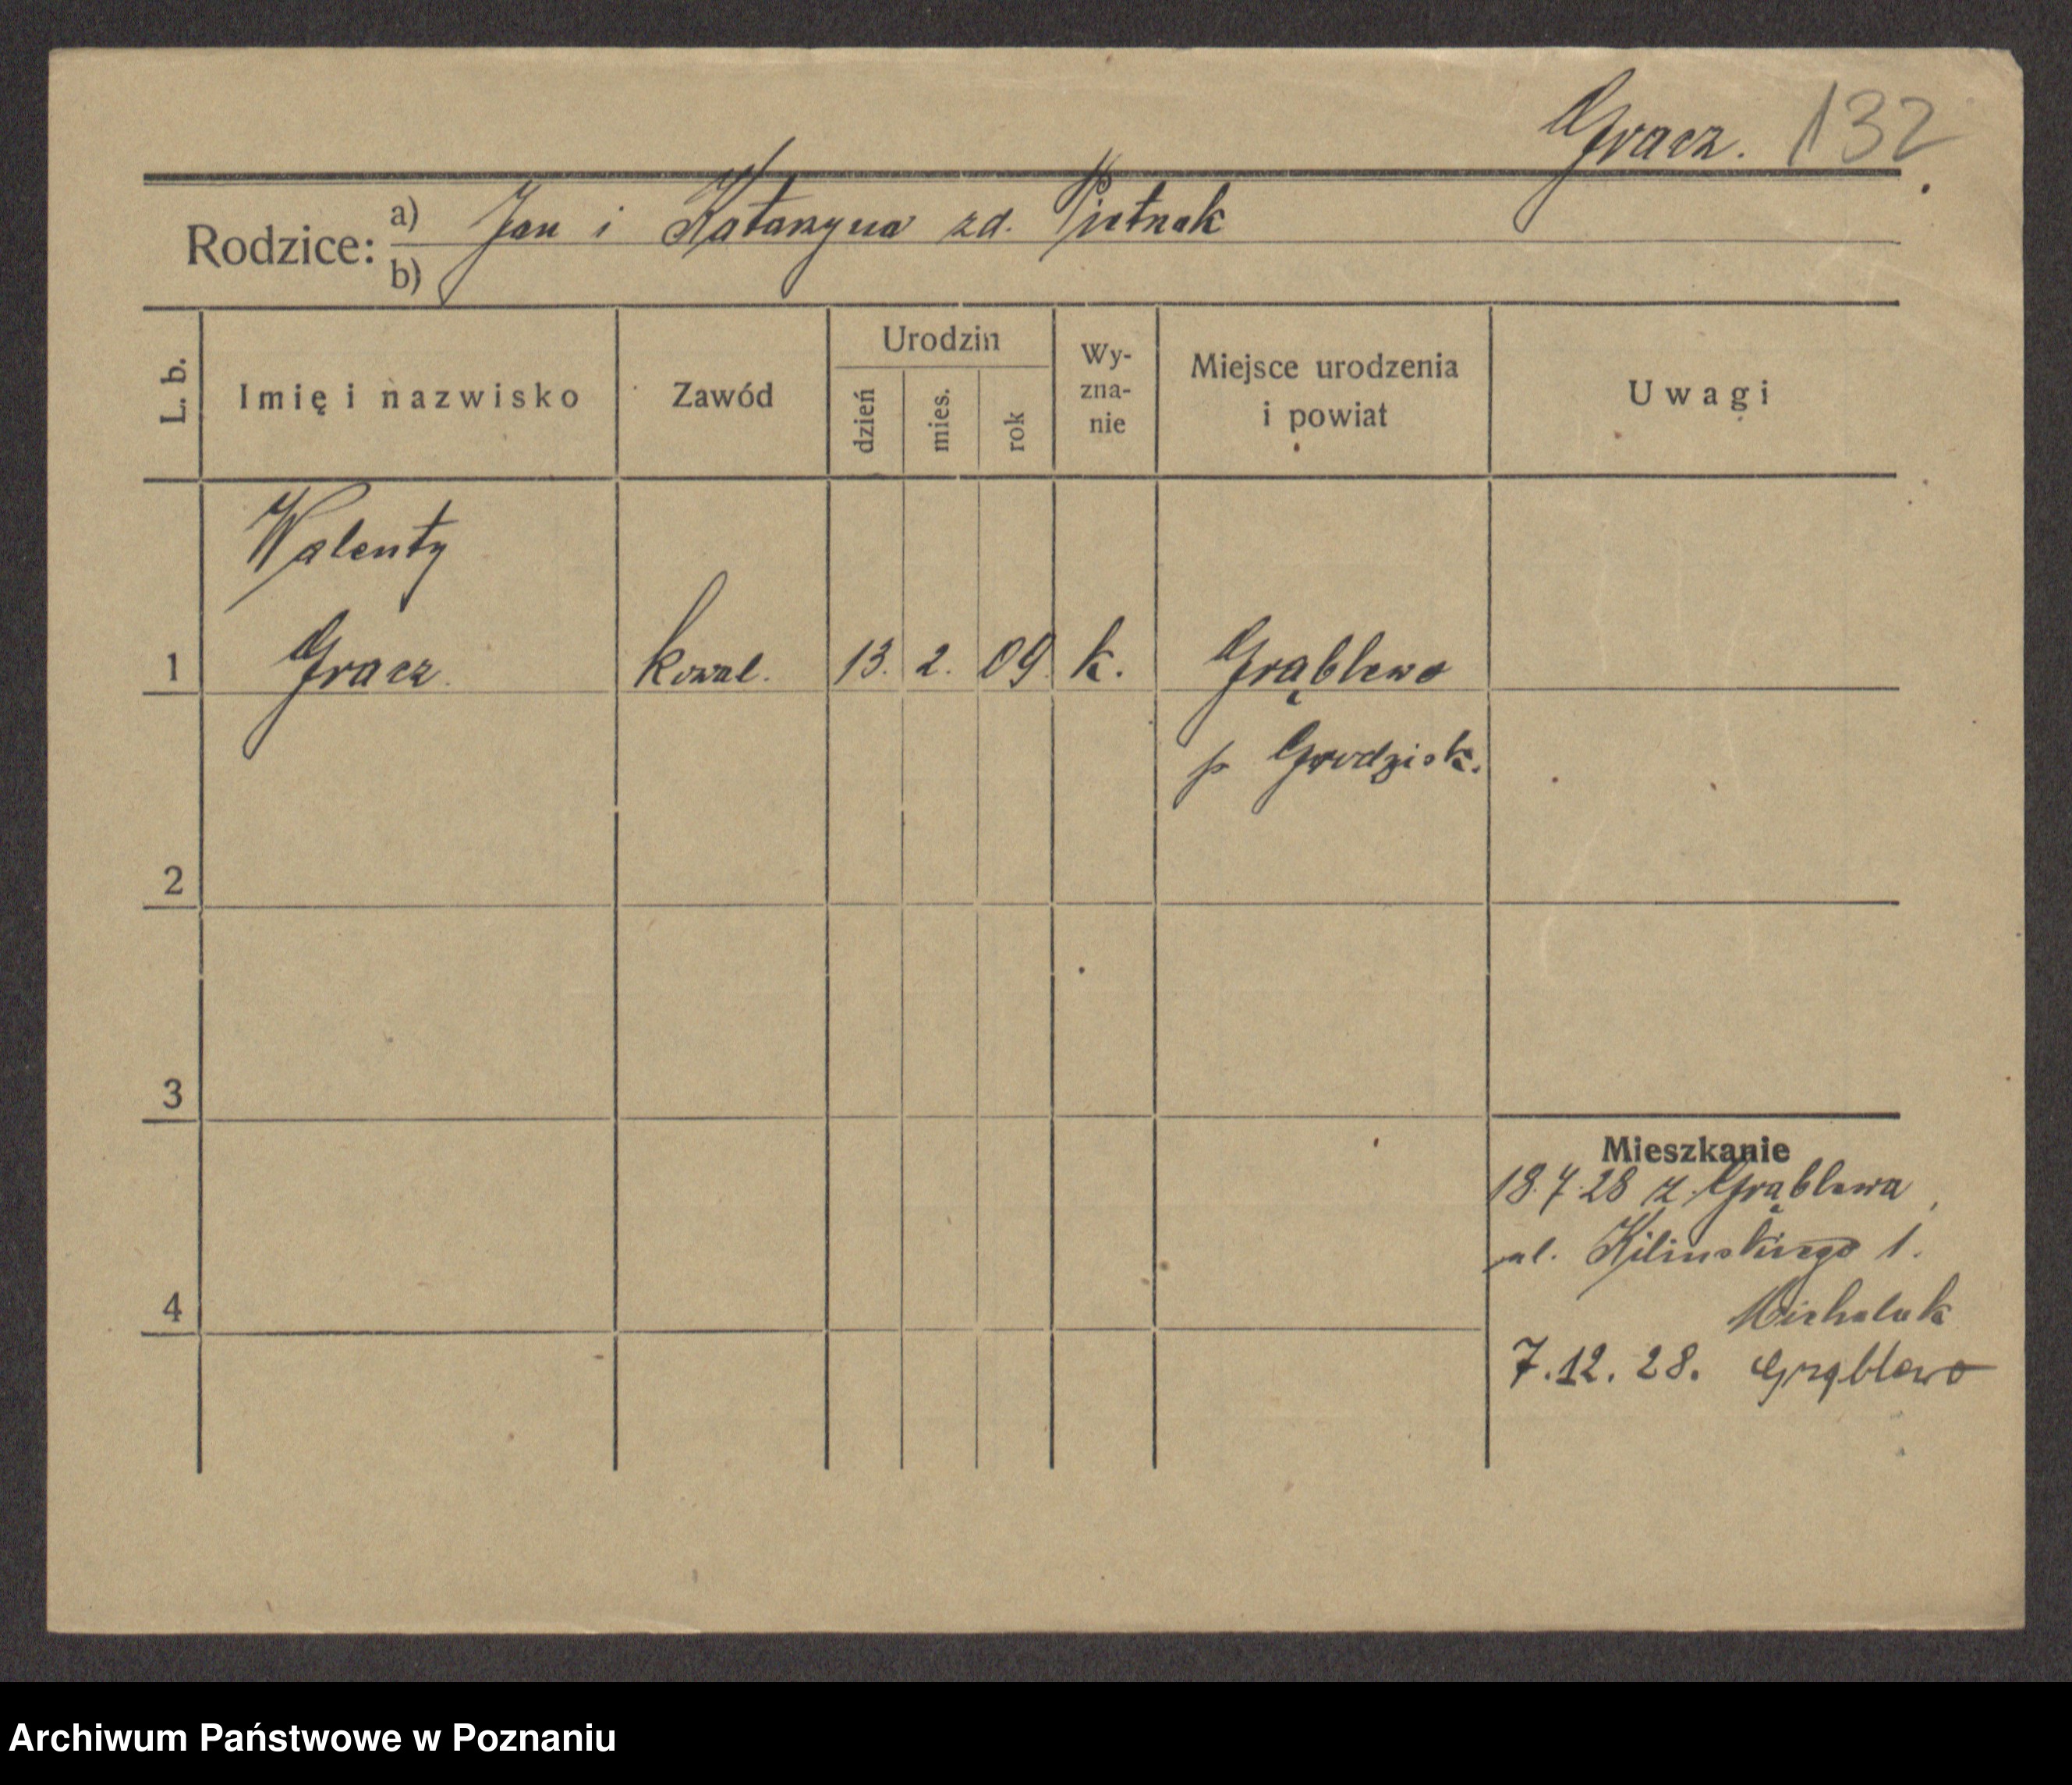 Gracz. 132
Rodzice: a) Jan i Katarzyna zd. Pietrzak
b)
L. b.
Imię i nazwisko
Zawód
Urodzin
dzień
mies.
rok
Wy-
zna-
nie
Miejsce urodzenia
i powiat
Uwagi
Walenty
1 Gracz. kowal. 13. 2. 09. k. Grąblewo
p Grodzisk.
2
3
Mieszkanie
18.7.28 z Grąblewa,
ul. Kilinskiego 1.
4 Michalak
7.12.28. Grąblewo
Archiwum Państwowe w Poznaniu